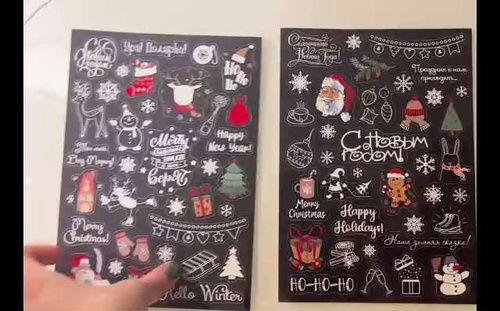 Ура! Подарки!
Ho
Ho
Ho
Happy
New Year!
Merry
Christmas!
Hello Winter
Сказочного
Нового Года!
Праздник к нам
приходит...
С Новым
годом!
Merry
Christmas
Happy
Holidays!
Наша зимняя сказка!
HO-HO-HO